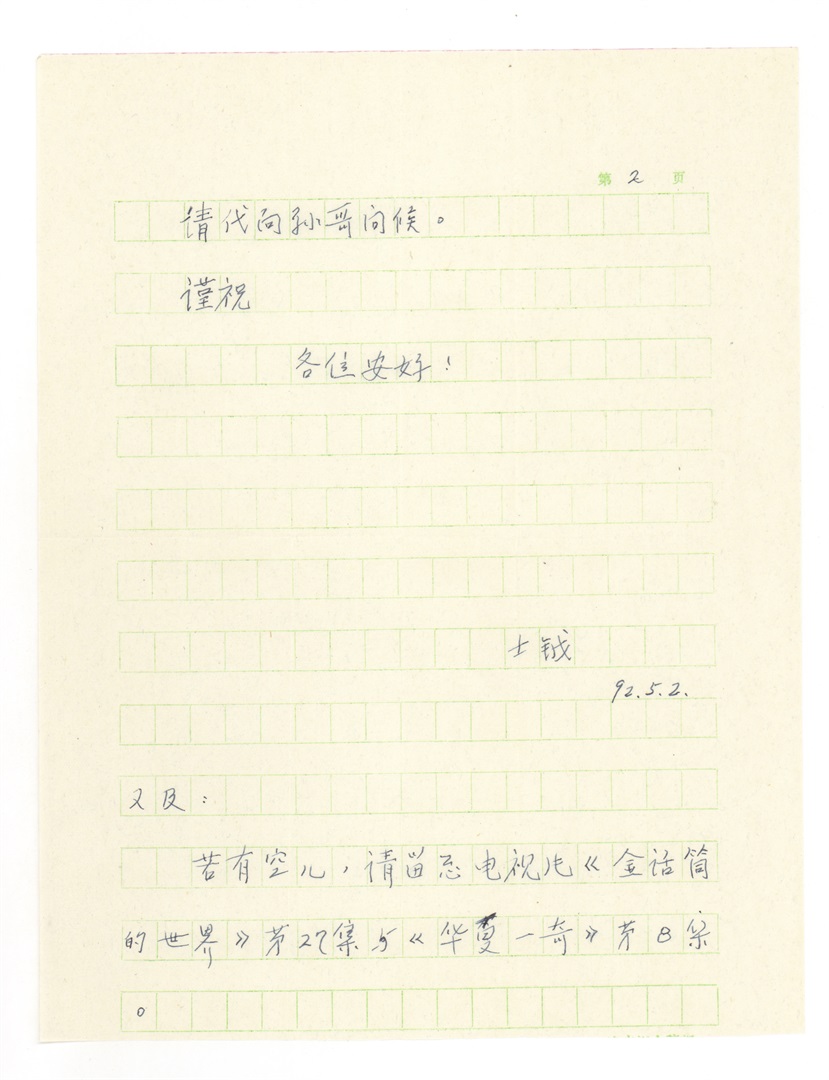 第 2 页
请代向孙哥问候。
谨祝
各位安好！
士钺
92.5.2.
又及：
若有空儿，请留意电视片《金话筒
的世界》第27集与《华夏一奇》第8集
。